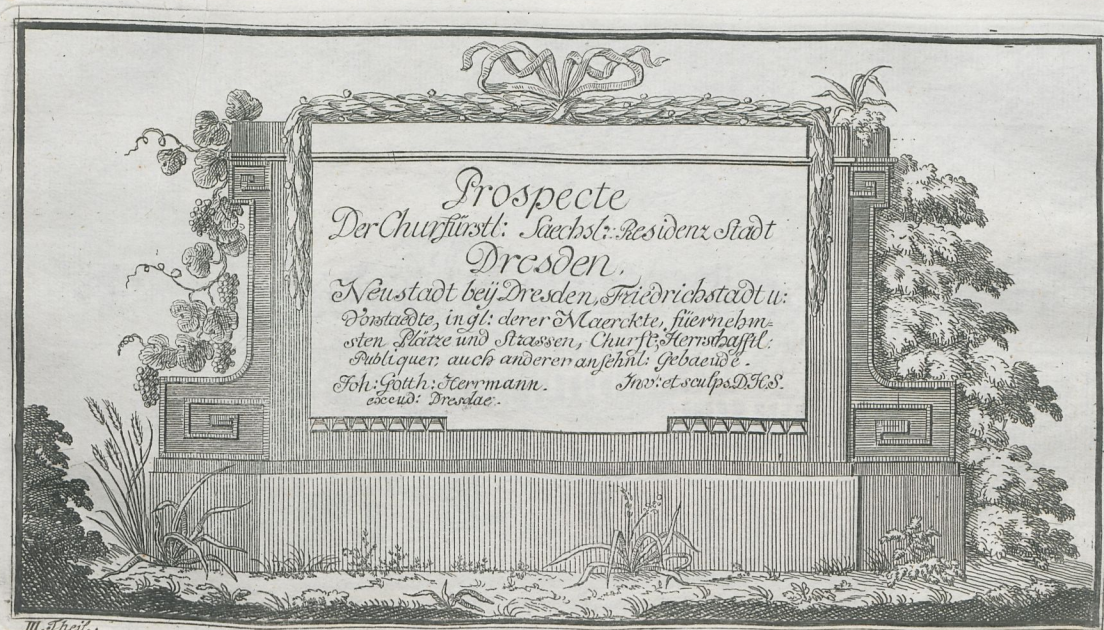 Prospecte
Der Churfürstl: Saechsl: Residenz Stadt
Dresden.
Neustadt beÿ Dresden, Friedrichstadt u:
Vorstaedte, ingl: derer Maerckte, füernehm=
sten Plätze und Strassen, Churfl. Herrschafftl:
Publiquer, auch anderer ansehnl: Gebaeude.
Joh: Gotth: Herrmann. Inv: et sculps. D.H.S.
excud: Dresdae.
III. Theil.